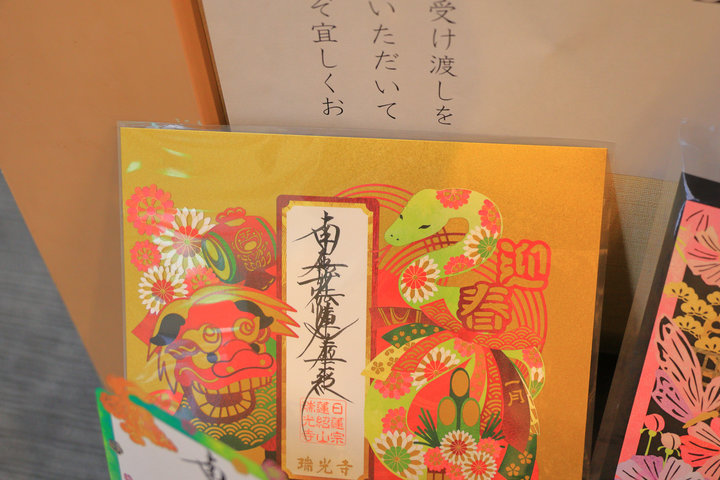 受け渡しを
いただいて
ぞ宜しくお
迎春
一月
南無妙法蓮華経
日蓮宗
蓮紹山
瑞光寺
瑞光寺
南